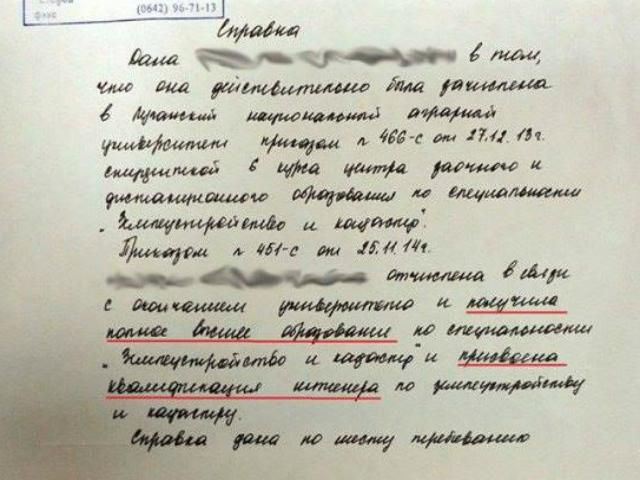 факс (0642) 96-71-13
Справка
Дана в том,
что она действительно была зачислена
в Луганский национальный аграрный
университет приказом № 466-с от 27.12.13г.
студенткой 6 курса центра заочного и
дистанционного образования по специальности
"Землеустройство и кадастр".
Приказом № 451-с от 25.11.14г.
отчислена в связи
с окончанием университета и получила
полное высшее образование по специальности
"Землеустройство и кадастр" и присвоена
квалификация инженера по землеустройству
и кадастру.
Справка дана по месту требованию